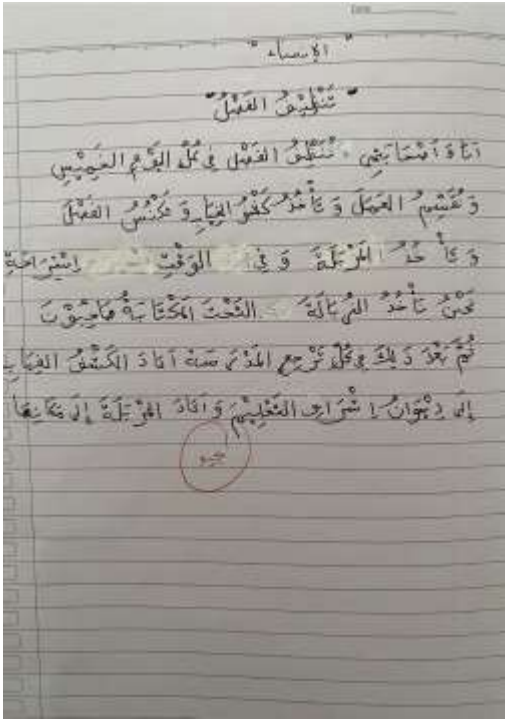 " الإنشاء "
" تَنْظِيْفُ الفَصْلُ "
أنَا وَ أَصْحَابِي نُنَظِّفُ الفَصْل فِي كُلّ اليَوْمُ الخَمِيْسِ
وَ نُقَسِّمُ العَمَلَ وَ نَأْخُذُ كَشْفُ الغِيَابِ وَ نَكْنُسُ الفَصْلَ
وَ نَأْخُذُ المَزْبَلَةَ وَ فِي الوَقْتِ إِسْتِرَاحَةِ
نَحْنُ نَأْخُذُ الزُبَالَةَ التَحْتَ المَكْتَابَةُ
ثُمَّ بَعْدَ ذٰلِكَ تَرْجِع المَدْرَسَة الكَشْفُ الغِيَاب
إِلَى دِيْوَانُ التَعْلِيْمِ وَ المَزْبَلَةَ إِلَى مَكَانِهَا
جيد